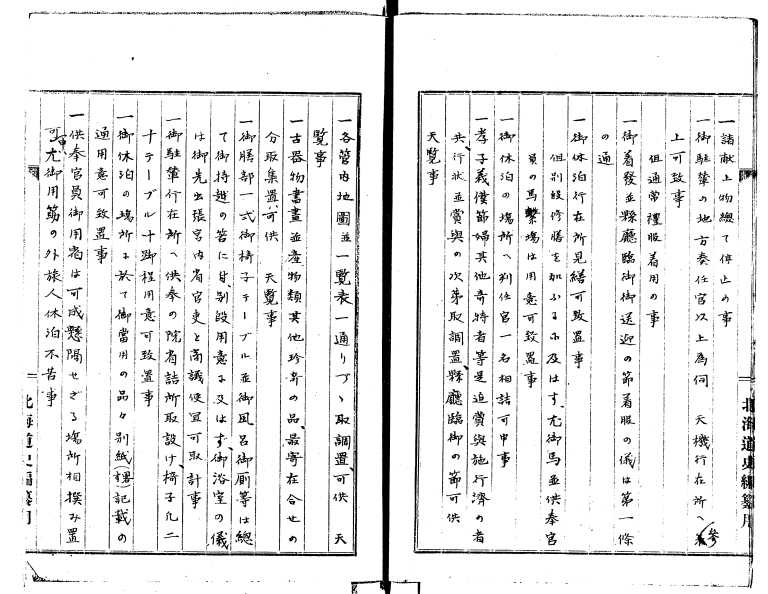 一諸献上物總て停止の事
一御駐輦の地方奏任官以上為伺 天機行在所へ参
上可致事
但通常禮服着用の事
一御着發並縣廳臨御御送迎の節着服の儀は第一條
の通
一御休泊行在所見繕可致置事
但別段修膳を加ふるに及はす、尤御馬並供奉官
員の馬繋場は用意可致置事
一御休泊の場所へ判任官一名相詰可申事
一孝子義僕節婦其他奇特者等是迄賞與施行濟の者
共、行状並賞與の次第取調置、縣廳臨御の節可供
天覧事
一各管内地圖並一覧表一通りづゝ取調置、可供 天
覧事
一古器物書畫並産物類其他珍奇の品、最寄在合せの
分取集置、可供 天覧事
一御膳部一式御椅子テーブル並御風呂御厠等は總
て御持越の筈に付、別段用意に及はす、御浴室の儀
は御先出張宮内省官吏と商議便宜可取計事
一御駐輦行在所へ供奉の院省詰所取設け、椅子凡二
十テーブル十脚程用意可致置事
一御休泊の場所に於て御當用の品々別紙(畧)記載の
通用意可致置事
一供奉官員御用宿は可成懸隔せざる場所相撰み置
可申、尤御用節の外旅人休泊不苦事
北海道史編纂用
北海道史編纂用